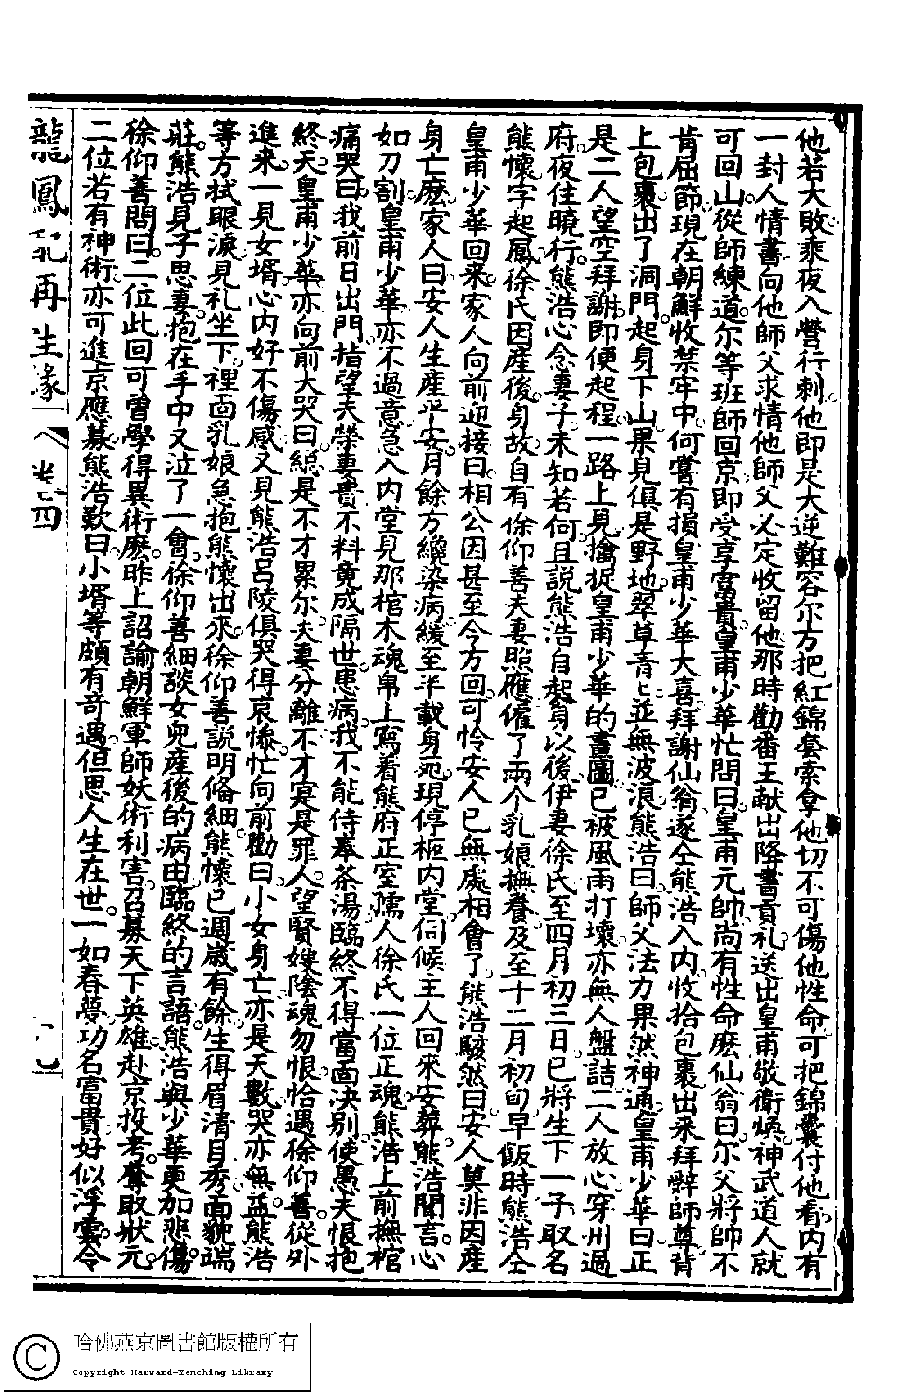 他若大敗乘夜入營行刺他即是大逆難容尔方把紅錦套索拿他切不可傷他性命可把錦囊付他看内有
一封人情書向他師父求情他師父必定收留他那時勸番王献出降書貢礼送出皇甫敬衛煥神武道人就
可回山從師練道尔等班師回京即受享富貴皇甫少華忙問曰皇甫元帥尚有性命麽仙翁曰尔父將帥不
肯屈節現在朝鮮收禁牢中何嘗有損皇甫少華大喜拜謝仙翁遂仝熊浩入内收拾包裹出来拜辭師尊背
上包裹出了洞門起身下山果見俱是野地翠草青ヒ並無波浪熊浩曰師父法力果然神通皇甫少華曰正
是二人望空拜謝即便起程一路上見擒捉皇甫少華的畫圖已被風雨打壞亦無人盤詰二人放心穿州過
府夜住曉行熊浩心念妻子未知若何且說熊浩自起身以後伊妻徐氏至四月初三日已將生下一子取名
熊懷字起鳳徐氏因産後身故自有徐仰善夫妻照應僱了兩个乳娘撫養及至十二月初旬早飯時熊浩仝
皇甫少華回来家人向前迎接曰相公因甚至今方回可怜安人已無處相會了熊浩駭然曰安人莫非因産
身亡麽家人曰安人生産平安月餘方纔染病緩至半載身死現停柩内堂伺候主人回來安葬熊浩聞言心
如刀割皇甫少華亦不過意急入内堂見那棺木魂帛上寫着熊府正室孺人徐氏一位正魂熊浩上前撫棺
痛哭曰我前日出門指望夫榮妻貴不料竟成隔世患病我不能侍奉茶湯臨終不得當面决别使愚夫恨抱
終天皇甫少華亦向前大哭曰總是不才累尔夫妻分離不才寔是罪人望賢嫂陰魂勿恨恰遇徐仰善從外
進来一見女婿心内好不傷感又見熊浩呂陵俱哭得哀惨忙向前勸曰小女身亡亦是天數哭亦無益熊浩
等方拭眼淚見礼坐下裡面乳娘急抱熊懷出來徐仰善說明備細熊懷已週歲有餘生得眉清目秀面貌端
莊熊浩見子思妻抱在手中又泣了一會徐仰善細談女兒産後的病由臨終的言語熊浩與少華更加悲傷
徐仰善問曰二位此回可曾學得異術麽昨上詔諭朝鮮軍師妖術利害召募天下英雄赴京投考奪取狀元
二位若有神術亦可進京應募熊浩歎曰小壻等頗有奇遇但思人生在世一如春夢功名富貴好似浮雲今
龍鳳配再生緣
卷四
哈佛燕京圖書館版權所有
Copyright Harvard-Yenching Library